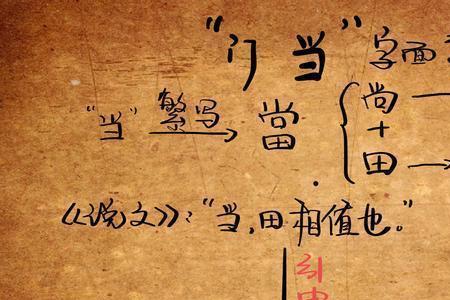 “门当”字面
“当”繁写→當{尚+田
《说文》：“当，田相值也。”
引申